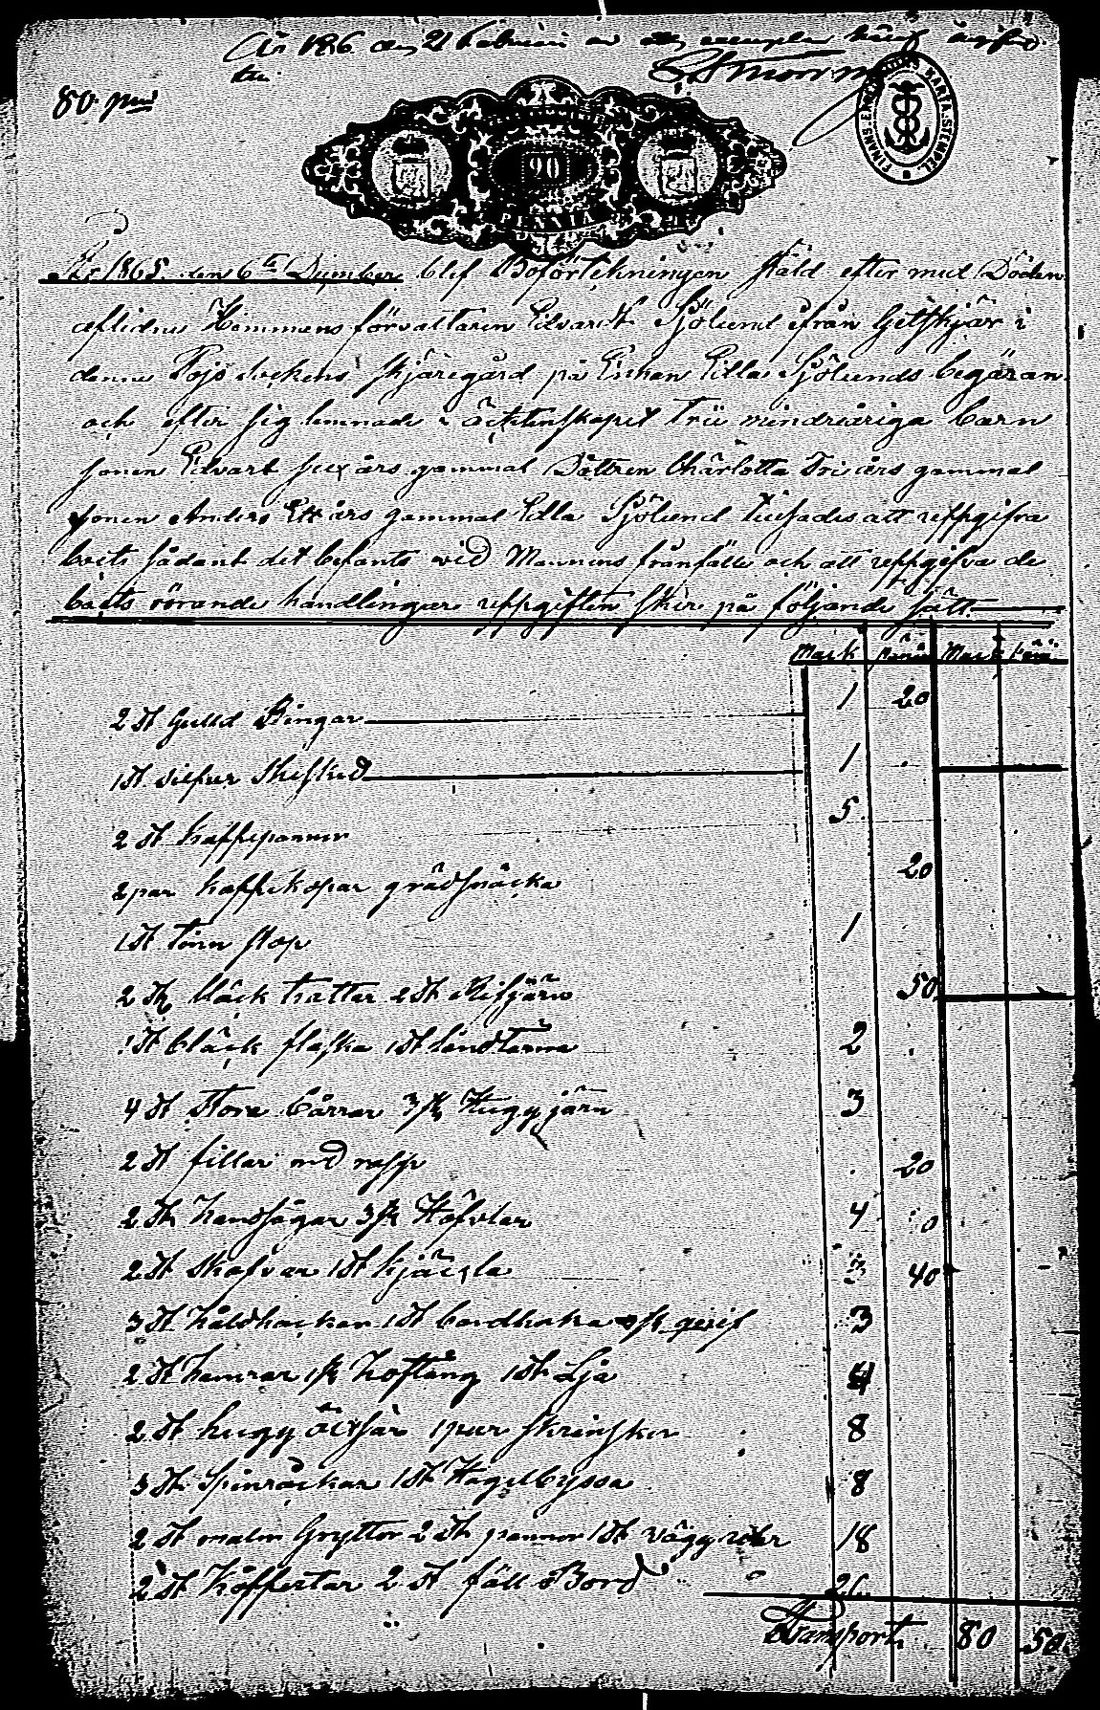 År 186 den 21 Februari av ett exemplar
80 pni
FINANS. EXPED. KARTA. STEMPEL
90
PENNIÄ
År 1865 den 6te Dcember blef Boförtekningen stäld efter med Döden
aflidne Hemmens förvaltaren Edvardt Sjölund från Getskjär i
denna Föjo sockens skjäregård på Enkan Ulla Sjölunds begäran
och efter sig lemnade i äcktenskapet tre minderåriga barn
sonen Edvart sex års gammal Dottren Charlotta Tri års gammal
sonen Anders Ett års gammal Ulla Sjölund tillsades att uppgifva
boets sådant det befants vid Mannens frånfälle och att uppgifva de
boets rörande handlingar uppgiften sker på följande sätt
Mark Mark
2 St Gulld Ringar 1 20
1 St silfver Skesked 1
2 St kaffepannor 5
2 par kaffekopar gräddsnäcka 20
1 St tenn stop 1
2 St bläck trattar 2 St Rifjärn 50
1 St bläck flaska 1 St 2
4 St Stora bårrar 3 st Huggjärn 3
2 St fillar med rasp 20
2 St handsågar 3 st Höfvlar 4
2 St Skafvar 1 St 40
3 St 1 St 3
2 St hamrar 1 st Hoftång 1 St Lja 4
2 St hugg 1 par 8
3 St Spinråckar 1 St Hagelbyssa 8
2 St malm Gryttor 2 St pannor 1 St väggur 18
2 St Koffertar 2 St fäll Bord
Transport 80 50